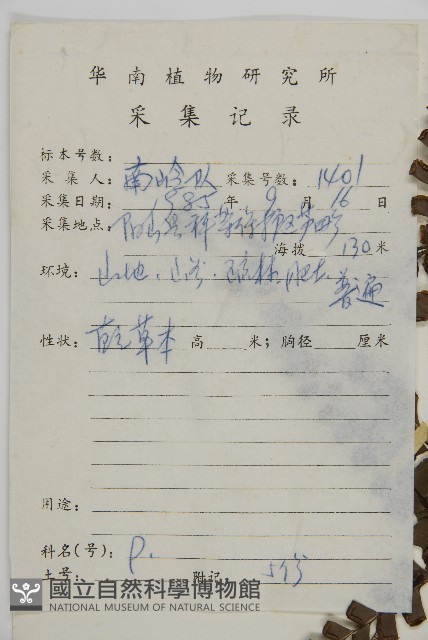 华南植物研究所
采集记录
标本号数：
采集人：南岭队 采集号数：1401
采集日期：1985年9月16日
采集地点：阳山县秤架
海拨130米
环境：山地、山谷、疏林、肥土、
普遍
性状：草本 高 米；胸径 厘米
用途：
科名(号)：P.
土号： 附记 5份
國立自然科學博物館
NATIONAL MUSEUM OF NATURAL SCIENCE